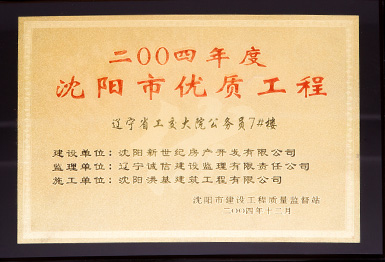 二00四年度
沈阳市优质工程
辽宁省工交大院公务员7#楼
建设单位：沈阳新世纪房产开发有限公司
监理单位：辽宁诚信建设监理有限责任公司
施工单位：沈阳洪基建筑工程有限公司
沈阳市建设工程质量监督站
二00四年十二月